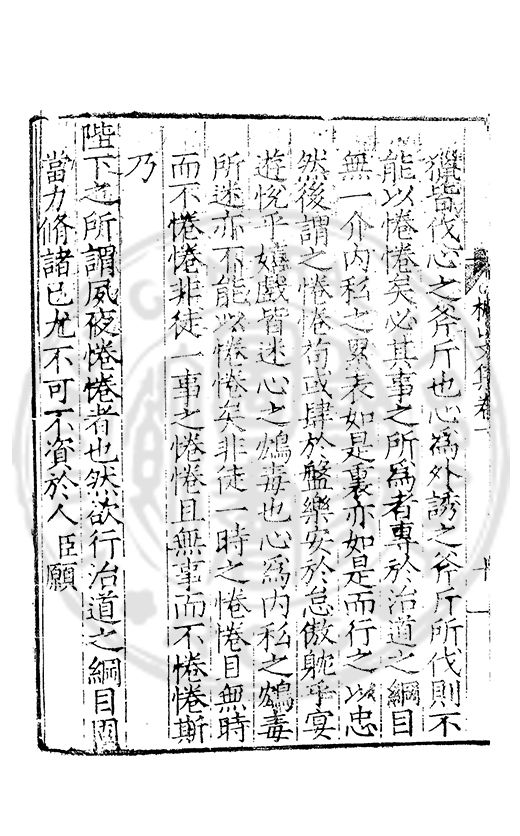 獵皆伐心之斧斤也心為外誘之斧斤所伐則不
能以惓惓矣必其事之所為者專於治道之綱目
無一介內私之累表如是裏亦如是而行之以忠
然後謂之惓惓苟或肆於盤樂安於怠傲躭乎宴
遊悅乎嬉戲皆迷心之鴆毒也心為內私之鴆毒
所迷亦不能以惓惓矣非徒一時之惓惓且無時
而不惓惓非徒一事之惓惓且無事而不惓惓斯
乃
陛下之所謂夙夜惓惓者也然欲行治道之綱目固
當力脩諸己尤不可不資於人臣願
文集卷一